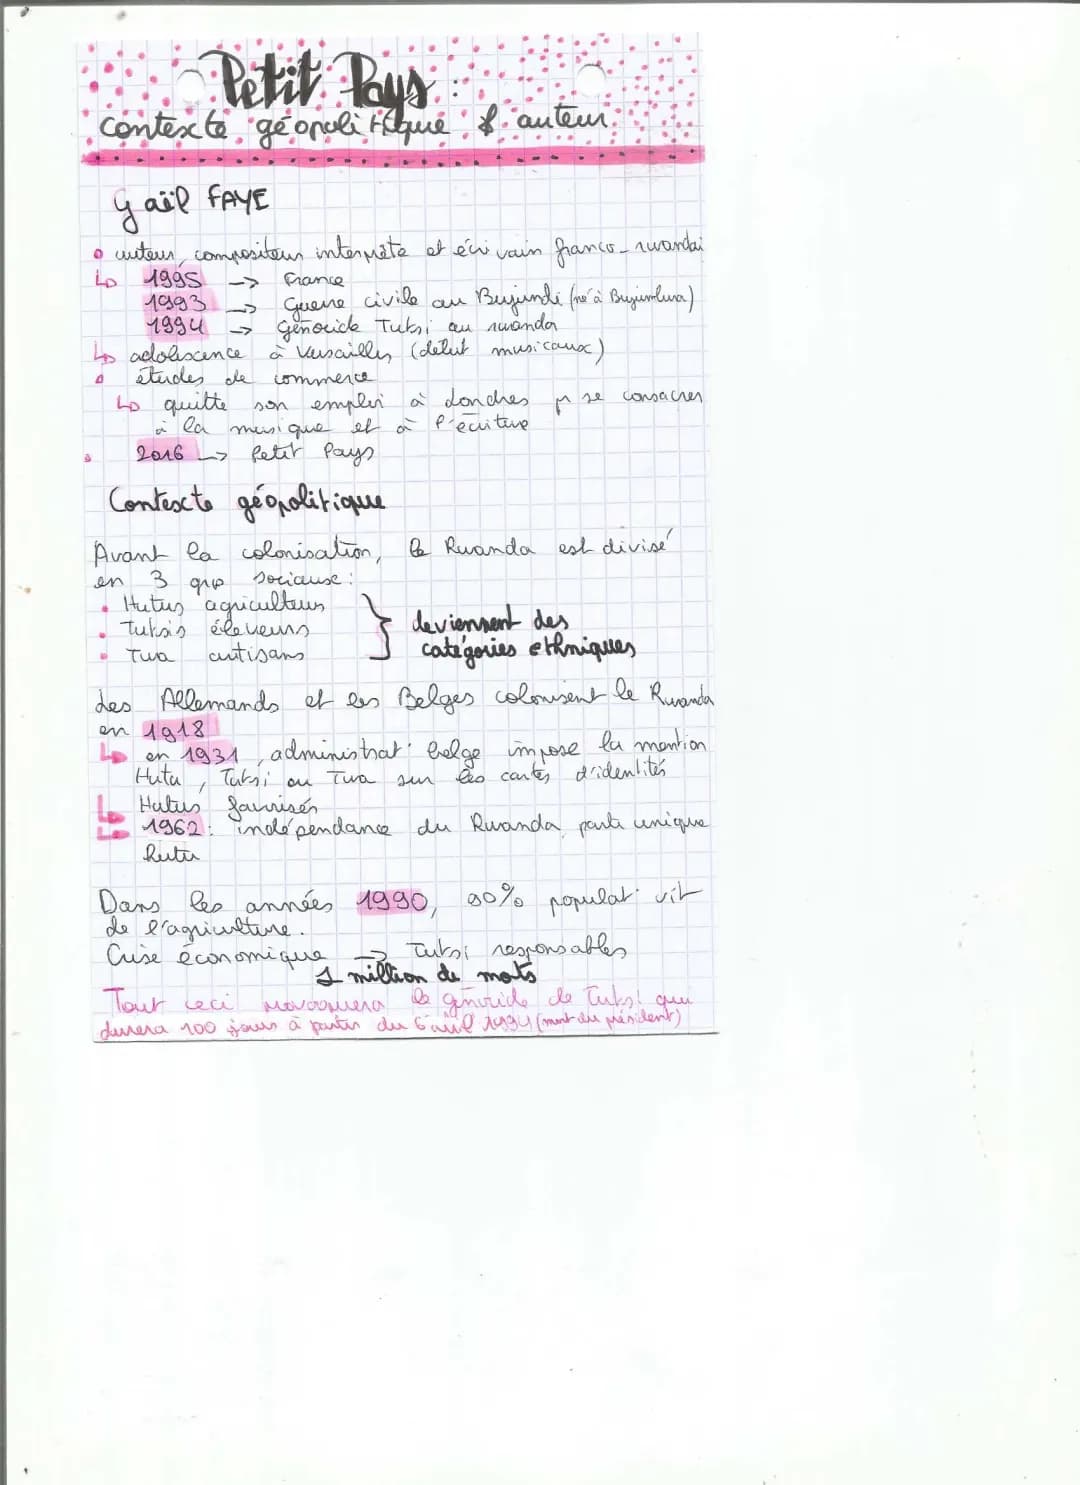 Petit Pays :
contexte géopolitique & auteur
Gaël FAYE
auteur, compositeur interprète et écrivain franco-rwandai
↳ 1995 -> France
1993 -> Guerre civile au Burundi (né à Bujumbura)
1994 -> Génocide Tutsi au rwanda
↳ adolescence à Versailles (début musicaux)
études de commerce
↳ quitte son emploi à Londres pr se consacrer
à la musique et à l'écriture
2016 -> Petit Pays
Contexte géopolitique
Avant la colonisation, le Ruanda est divisé
en 3 grp sociause :
• Hutus agriculteurs
• Tutsis éleveurs
• Twa artisans
} deviennent des
catégories ethniques
Les Allemands et les Belges colonisent le Ruanda
en 1918
↳ en 1931, administrat° belge impose la mention
Hutu, Tutsi ou Twa sur les cartes d'identités
↳ Hutus favorisés
↳ 1962 : indépendance du Ruanda, parti unique
hutu
Dans les années 1990, 90% populat° vit
de l'agriculture.
Crise économique -> Tutsi responsables
1 million de morts
Tout ceci le génocide de Tutsi qui
durera 100 jours à partir du 6 avril 1994 (mort du président)